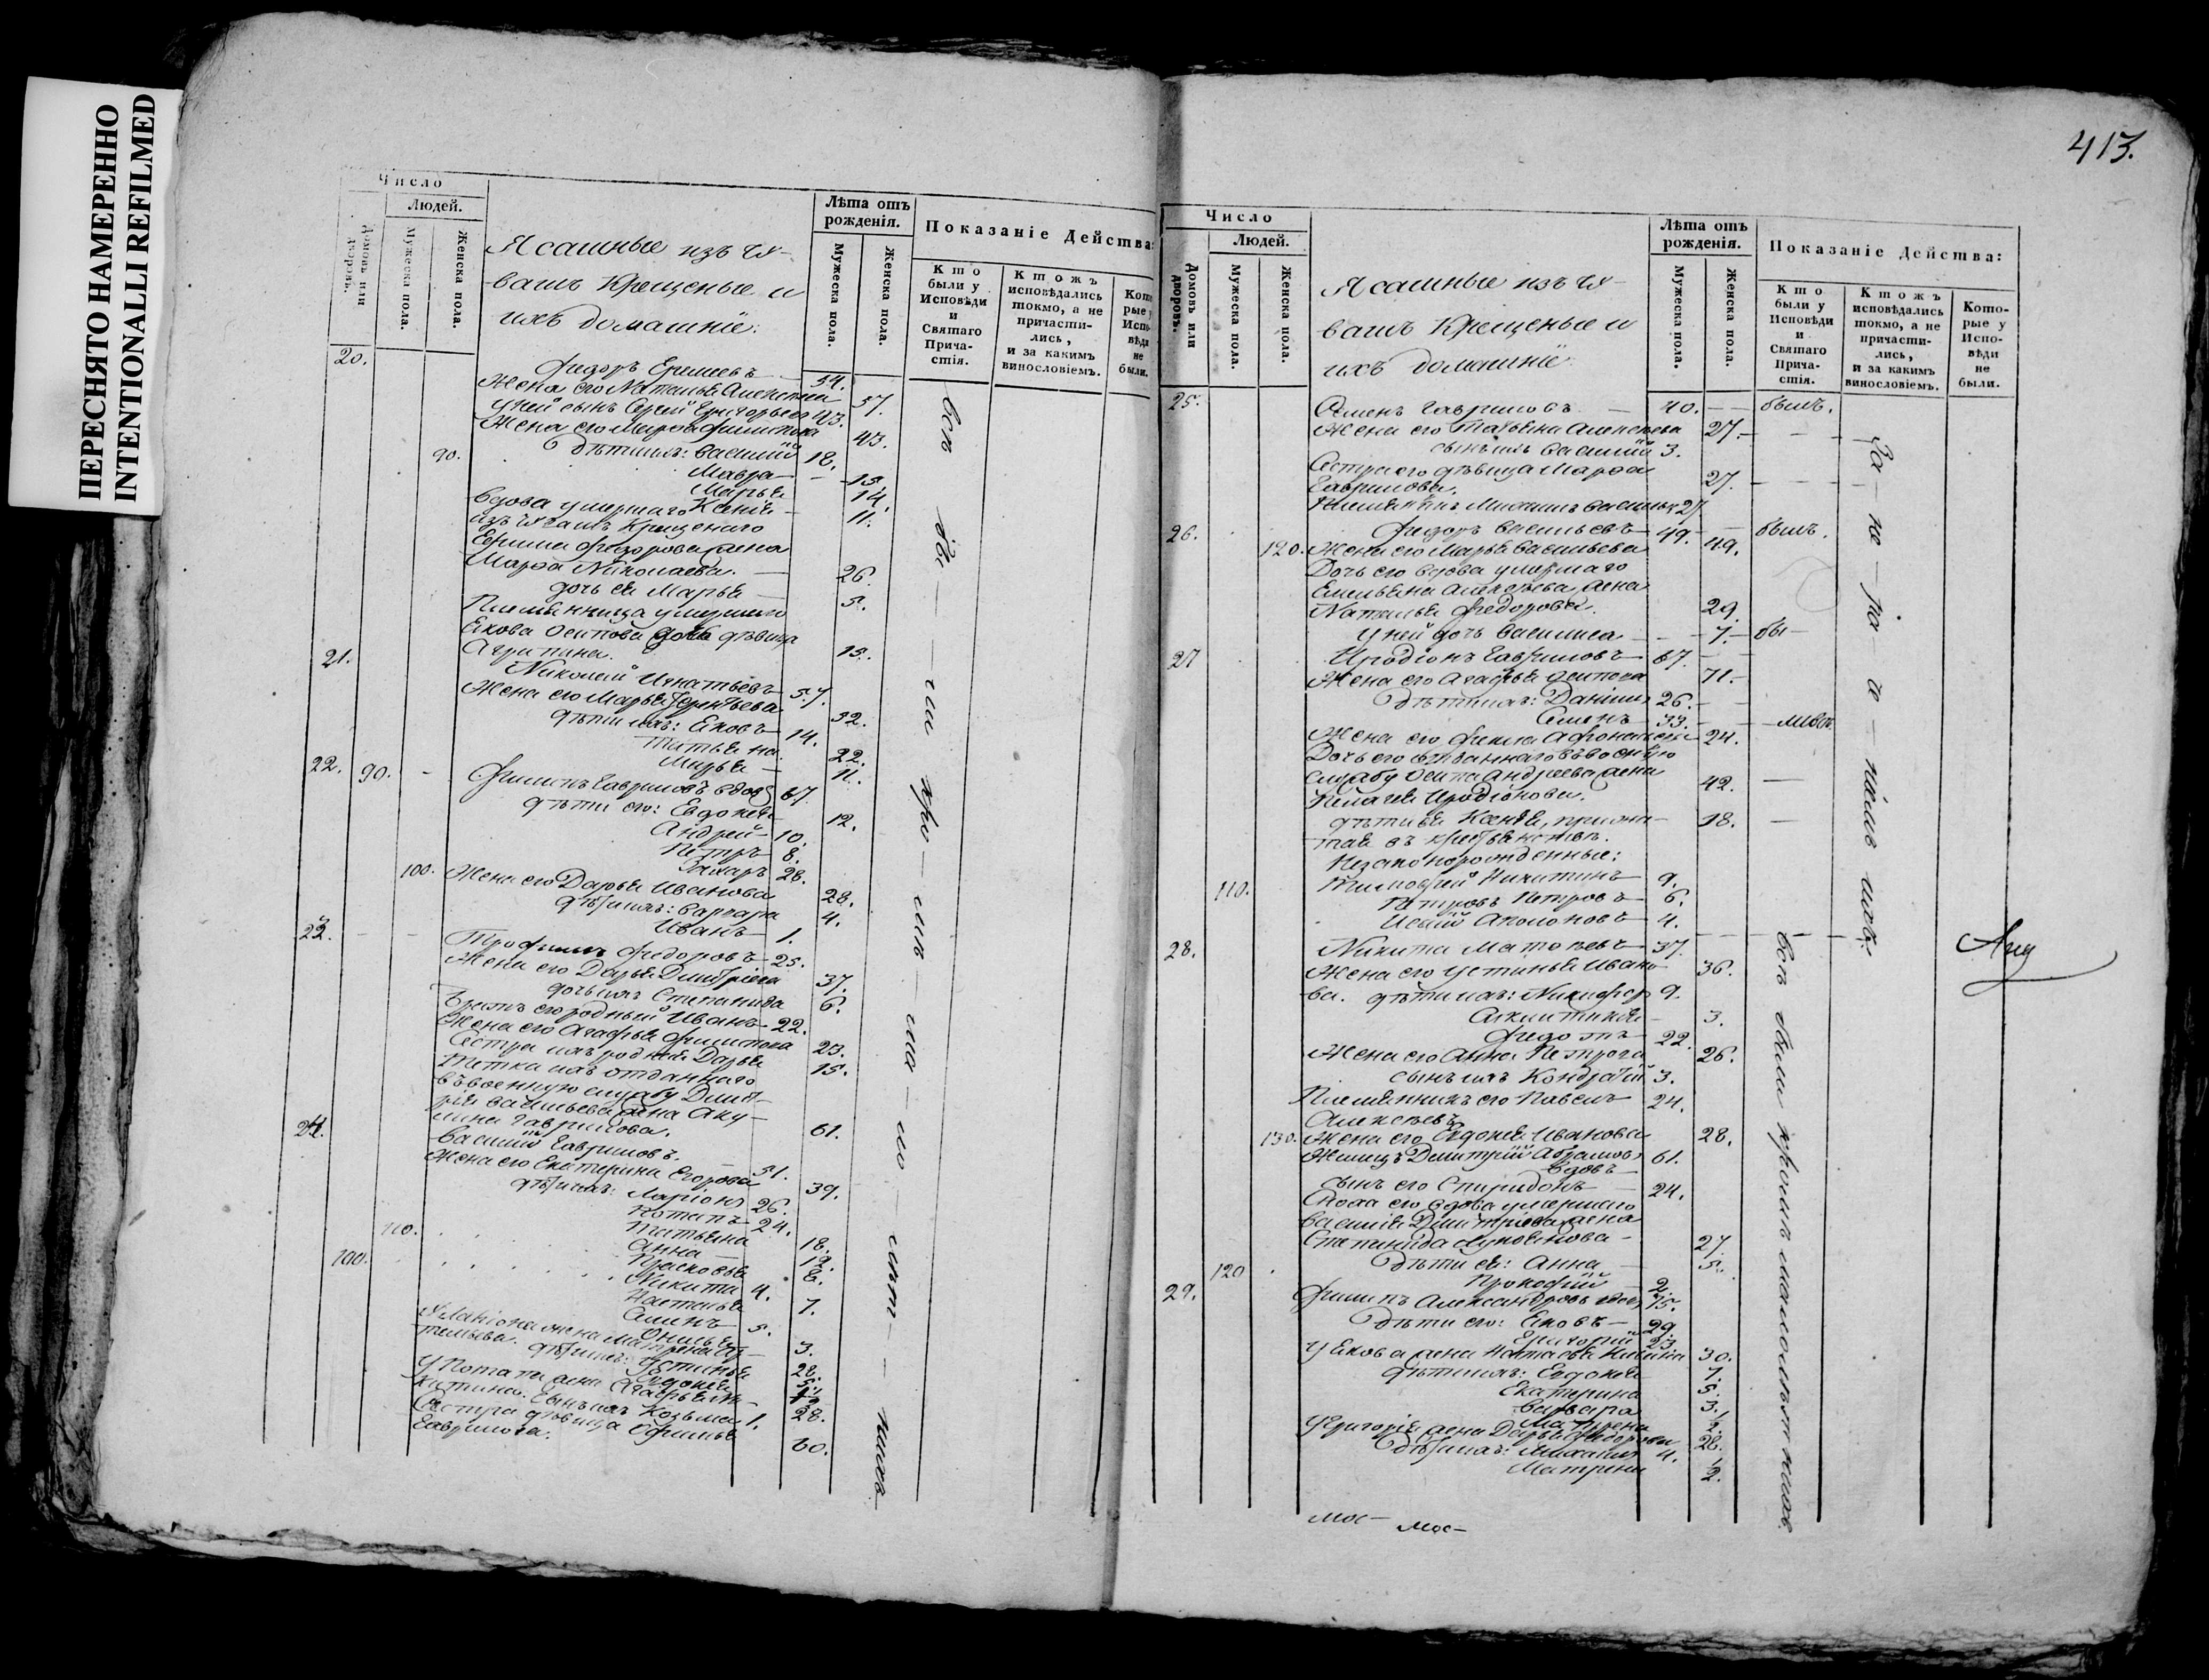 ПЕРЕСНЯТО НАМЕРЕННО
INTENTIONALLI REFILMED
413.
Число
Людей.
Домовъ или дворовъ.
Мужеска пола.
Женска пола.
Ясашные изъ Чу-
вашъ Крещеные и
ихъ домашніе:
Лѣта отъ
рожденія.
Мужеска пола.
Женска пола.
Показаніе Действа:
Кто
были у
Исповѣди
и
Святаго
Прича-
стія.
Ктожъ
исповѣдались
токмо, а не
причасти-
лись,
и за какимъ
винословіемъ.
Кото
рые у
Испо-
вѣди
не
были.
20.
Федоръ Еремеевъ 54.
Жена его Наталья Алексеева 57.
У ней сынъ Сергей Григорьевъ 43.
Жена его Марфа Филипова 43.
90. Дѣти ихъ: Василий 18.
Мавра 15.
Марья 14.
Ксенія 11.
Вдова умершаго
изъ Чувашъ Крещенаго
Ефрима Федорова жена
Марфа Николаева. 26.
дочь ея Марья 5.
Племянница умершаго
Якова Осипова дочь дѣвица
Агрипина. 15.
21. Николай Игнатьевъ 57.
Жена его Марья Терентьева 52.
дѣти ихъ: Яковъ 14.
Татьяна 22.
Марья 11.
22. 90. Филипъ Гавриловъ вдовъ 67.
дѣти его: Евдокея 12.
Андрей 10.
Петръ 8.
Захаръ 28.
100. Жена его Дарья Иванова 28.
дѣти ихъ: Варвара 4.
Иванъ 1.
23. Трофимъ Федоровъ 25.
Жена его Дарья Дмитріева 37.
дочь ихъ Степанида 6.
Братъ его родный Иванъ 22.
Жена его Агафья Филипова 23.
Сестра ихъ родная Дарья 15.
Тетка ихъ отданнаго
въ военную службу Дмит-
рія Васильева жена Аку-
лина Гаврилова. 61.
24. Василий Гавриловъ. 51.
Жена его Екатерина Егорова 39.
дѣти ихъ: Ларіонъ 26.
Потапъ 24.
110. Татьяна 18.
Анна 12.
100. Прасковья 8.
Никита 4.
Настасья 7.
Семенъ 5.
3.
У Ларіона жена Матрена
28.
дѣти ихъ: Устинья 5.
Евдокея
У Потапа жена Агафья Ни-
китина. Сынъ ихъ Козьма 1. 28.
Сестра дѣвица Офимья
Гаврилова. 60.
Число
Людей.
Домовъ или дворовъ.
Мужеска пола.
Женска пола.
Ясашные изъ Чу-
вашъ Крещеные и
ихъ домашніе
Лѣта отъ
рожденія.
Мужеска пола.
Женска пола.
Показаніе Действа:
Кто
были у
Исповѣди
и
Святаго
Прича-
стія.
Ктожъ
исповѣдались
токмо, а не
причасти-
лись,
и за какимъ
винословіемъ.
Кото-
рые у
Испо-
вѣди
не
были.
25. Семенъ Гавриловъ 40. былъ.
Жена его Татьяна Алексеева 27.
сынъ ихъ Василий 3.
Сестра его дѣвица Марфа
Гаврилова. 27.
Племянникъ Михаилъ Васильевъ 27
26. Федоръ Васильевъ 49. былъ.
120. Жена его Марья Васильева 49.
Дочь его вдова умершаго
Емельяна Алексеева жена
Наталья Федорова. 29.
У ней дочь Василиса 7. бы
27 Иродіонъ Гавриловъ 67.
Жена его Агафья Осипова 71.
дѣти ихъ: Даніилъ 26.
Семенъ 33.
Жена его Фекла Афонасьева 24.
Дочь его отданнаго въ военную
службу Осипа Андреева жена
Пелагея Иродіонова. 42.
дѣти ея Ксенья, прижи- 18.
тая въ крестьянствѣ.
Незаконорожденные:
110. Тимофей Никитинъ 9.
Петровъ 6.
Исай Аполоновъ 4.
28. Никита Матвеевъ 37.
Жена его Устинья Ивано- 36.
ва. дѣти ихъ: Никифоръ 9.
3.
Федотъ 22.
Жена его Анна Петрова 26.
сынъ ихъ Кондратий 3.
Племянникъ его Павелъ 24.
Алексѣевъ
130. Жена его Евдокея Иванова 28.
Жилецъ Дмитрій Абрамовъ 61.
вдовъ
сынъ его Спиридонъ 24.
Сноха его вдова умершаго
Василія Дмитріева жена
Степанида Лукоянова 27.
дѣти ея: Анна 5.
120 Прокофий 2.
29. Филипъ Александровъ вдовъ 75.
дѣти его: Яковъ 29.
Григорий 23.
У Якова жена Наталья 30.
дѣти ихъ: Евдокея 7.
Екатерина 5.
Варвара 3.
Матрена 1/2.
У Григорія жена Дарья Федорова 28.
дѣти ихъ: Михаилъ 4.
Матрена 1/2.
всѣ были кромѣ малолѣтнихъ